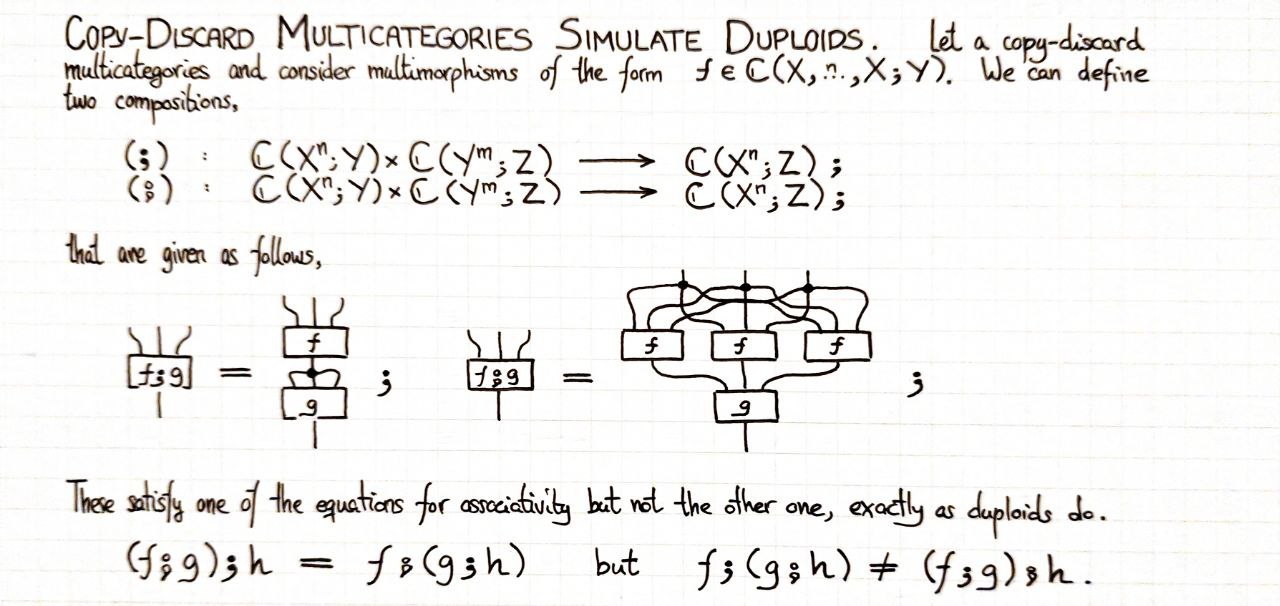 COPY-DISCARD MULTICATEGORIES SIMULATE DUPLOIDS. Let a copy-discard
multicategories and consider multimorphisms of the form f ∈ ℂ(X, .n., X; Y). We can define
two compositions,
(;) : ℂ(Xⁿ; Y) × ℂ(Yᵐ; Z) ⟶ ℂ(Xⁿ; Z) ;
(⨟) : ℂ(Xⁿ; Y) × ℂ(Yᵐ; Z) ⟶ ℂ(Xⁿ; Z) ;
that are given as follows,
f f f f
f;g = ; f⨟g = ;
g g
These satisfy one of the equations for associativity but not the other one, exactly as duploids do.
(f⨟g);h = f⨟(g;h) but f;(g⨟h) ≠ (f;g)⨟h.